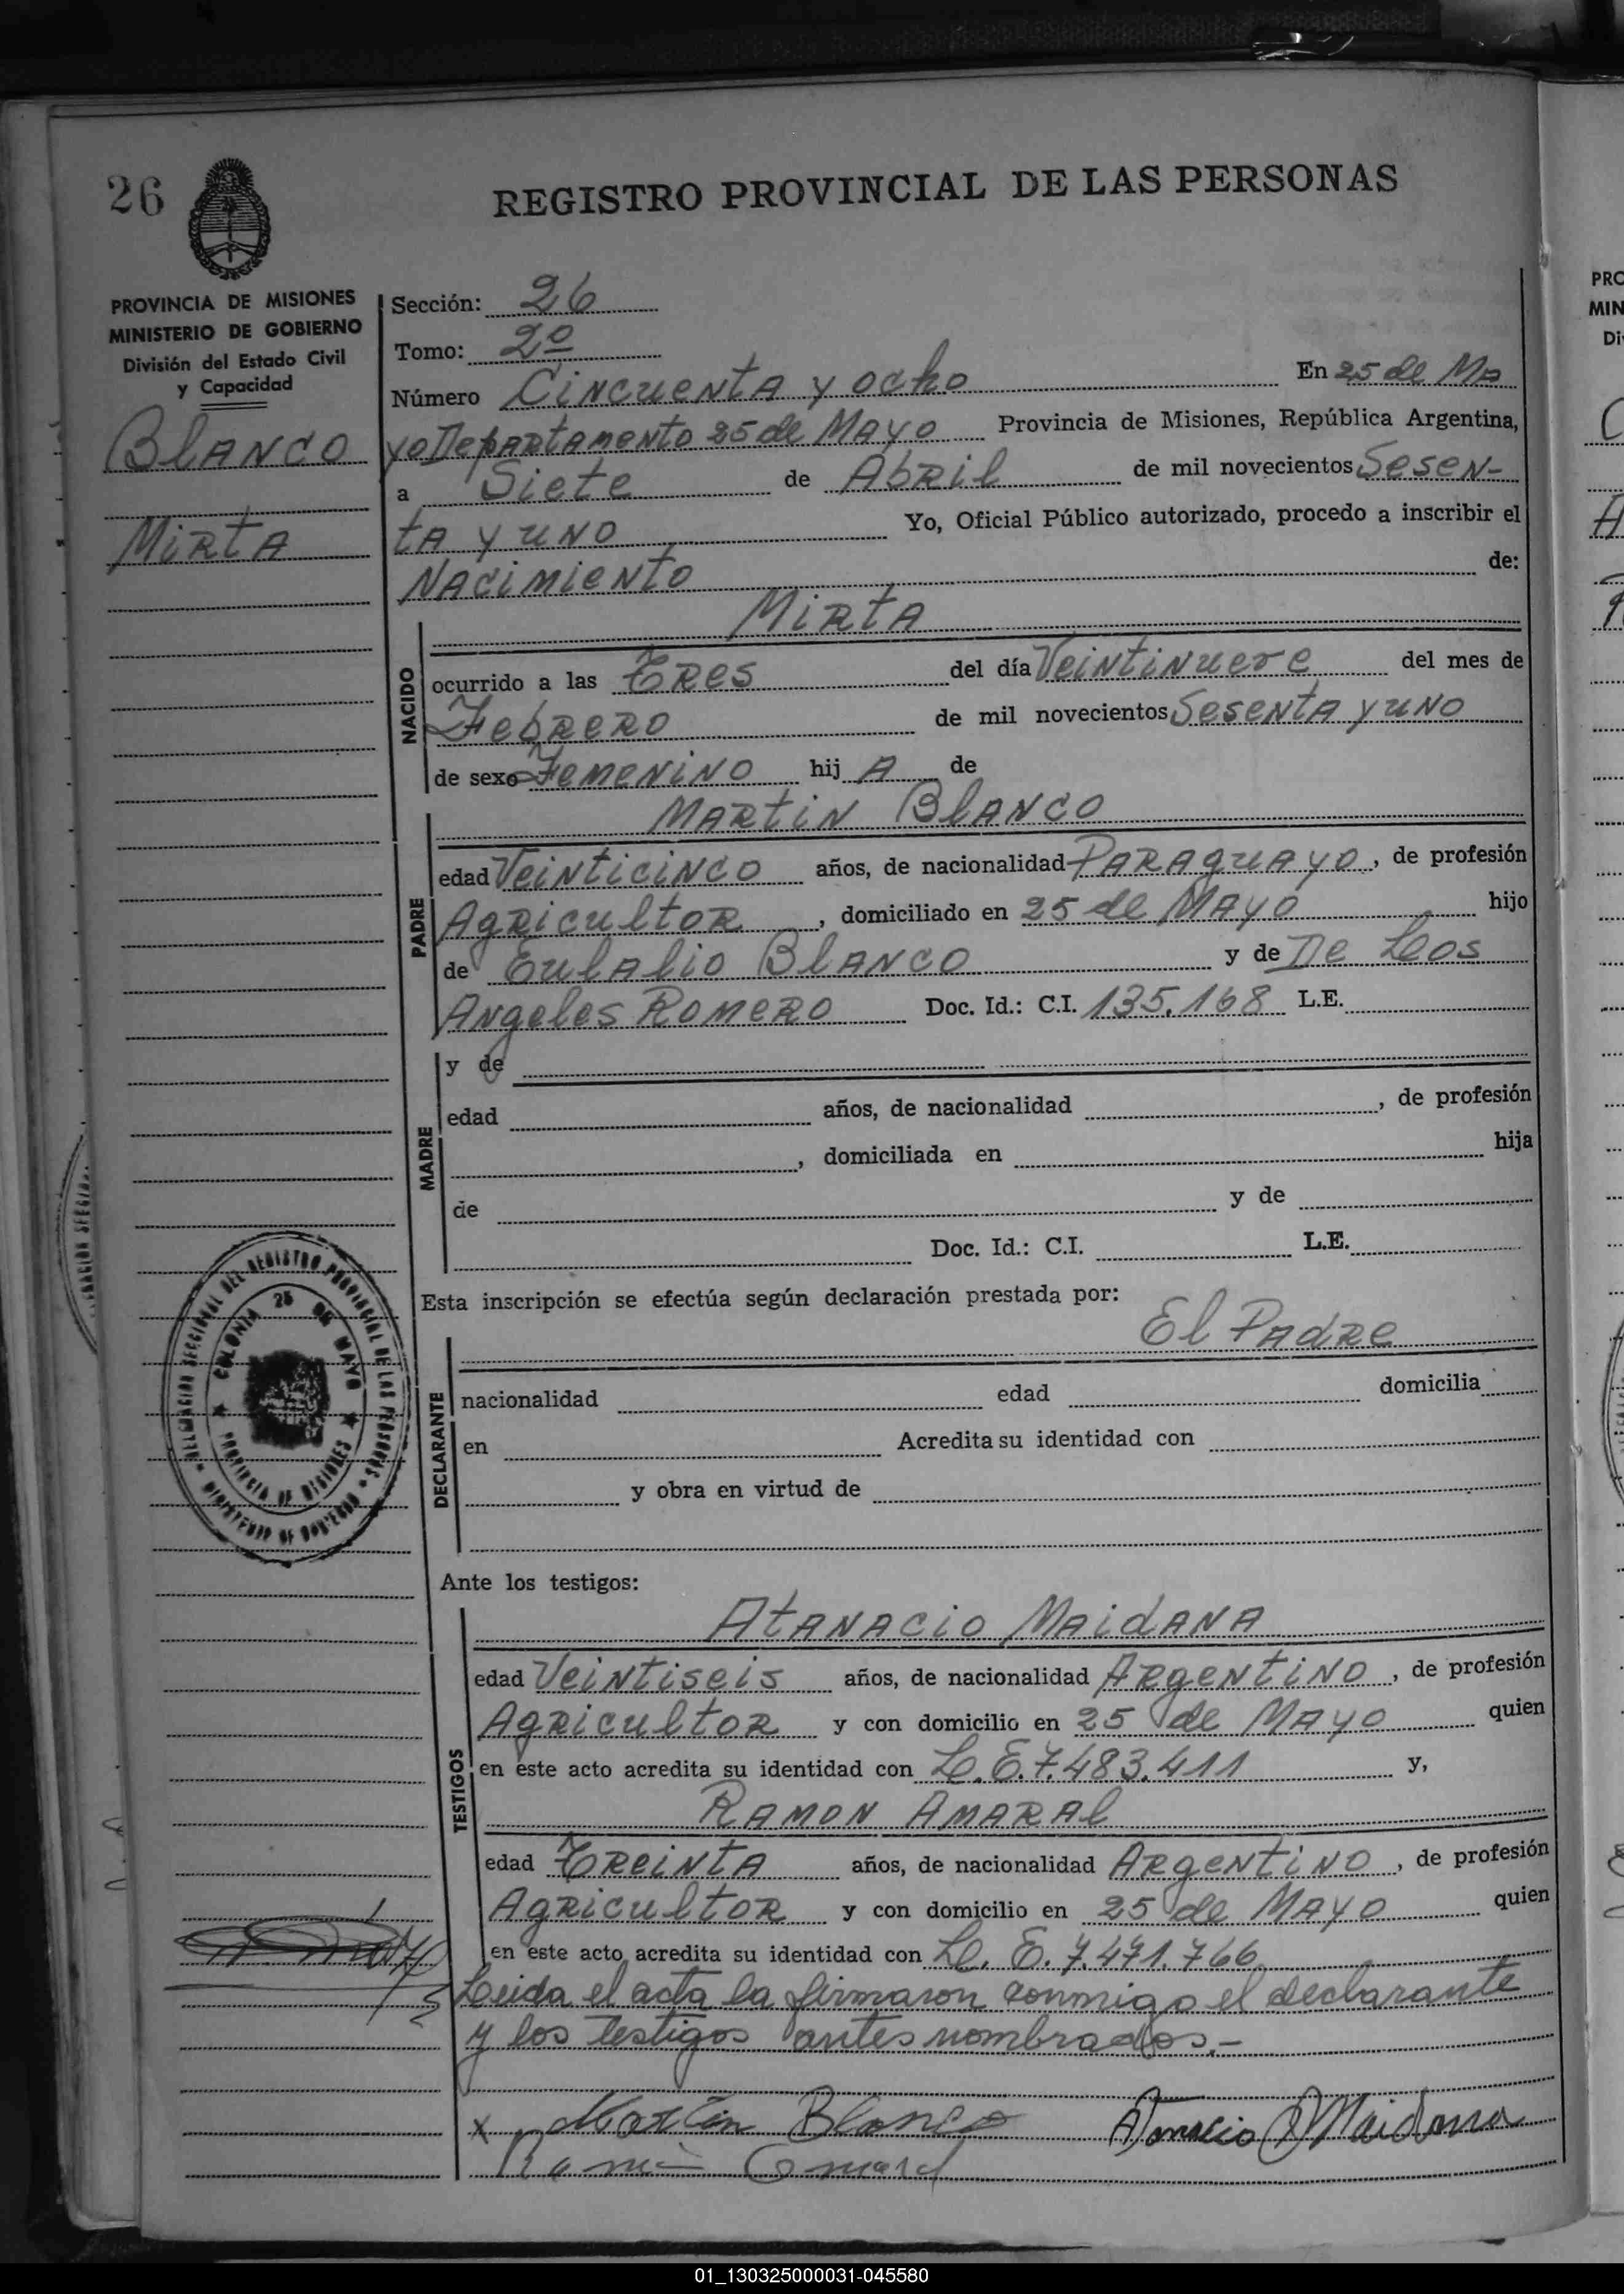 26
REGISTRO PROVINCIAL DE LAS PERSONAS
PROVINCIA DE MISIONES
MINISTERIO DE GOBIERNO
División del Estado Civil
y Capacidad
Blanco
Mirta
Sección: 26
Tomo: 2º
Número Cincuenta y ocho En 25 de Ma
yo Departamento 25 de Mayo Provincia de Misiones, República Argentina,
a Siete de Abril de mil novecientos Sesen-
ta y uno Yo, Oficial Público autorizado, procedo a inscribir el
Nacimiento de:
NACIDO
Mirta
ocurrido a las Tres del día Veintinueve del mes de
Febrero de mil novecientos Sesenta y uno
de sexo Femenino hij A de
PADRE
Martin Blanco
edad Veinticinco años, de nacionalidad Paraguayo, de profesión
Agricultor, domiciliado en 25 de Mayo hijo
de Eulalio Blanco y de De Los
Angeles Romero Doc. Id.: C.I. 135.168 L.E.
MADRE
y de
edad años, de nacionalidad , de profesión
, domiciliada en hija
de y de
Doc. Id.: C.I. L.E.
Esta inscripción se efectúa según declaración prestada por:
El Padre
DECLARANTE
nacionalidad edad domicilia
en Acredita su identidad con
y obra en virtud de
DELEGACION SECCIONAL DEL REGISTRO PROVINCIAL DE LAS PERSONAS
MINISTERIO DE GOBIERNO
COLONIA 25 DE MAYO
PROVINCIA DE MISIONES
Ante los testigos:
TESTIGOS
Atanacio Maidana
edad Veintiseis años, de nacionalidad Argentino, de profesión
Agricultor y con domicilio en 25 de Mayo quien
en este acto acredita su identidad con L.E. 7.483.411 y,
Ramon Amaral
edad Treinta años, de nacionalidad Argentino, de profesión
Agricultor y con domicilio en 25 de Mayo quien
en este acto acredita su identidad con L.E. 7.471.766
Leida el acta la firmaron conmigo el declarante
y los testigos antes nombrados.-
x Martin Blanco Atanacio Maidana
Ramón Amaral
PRO
MIN
Di
01_130325000031-045580